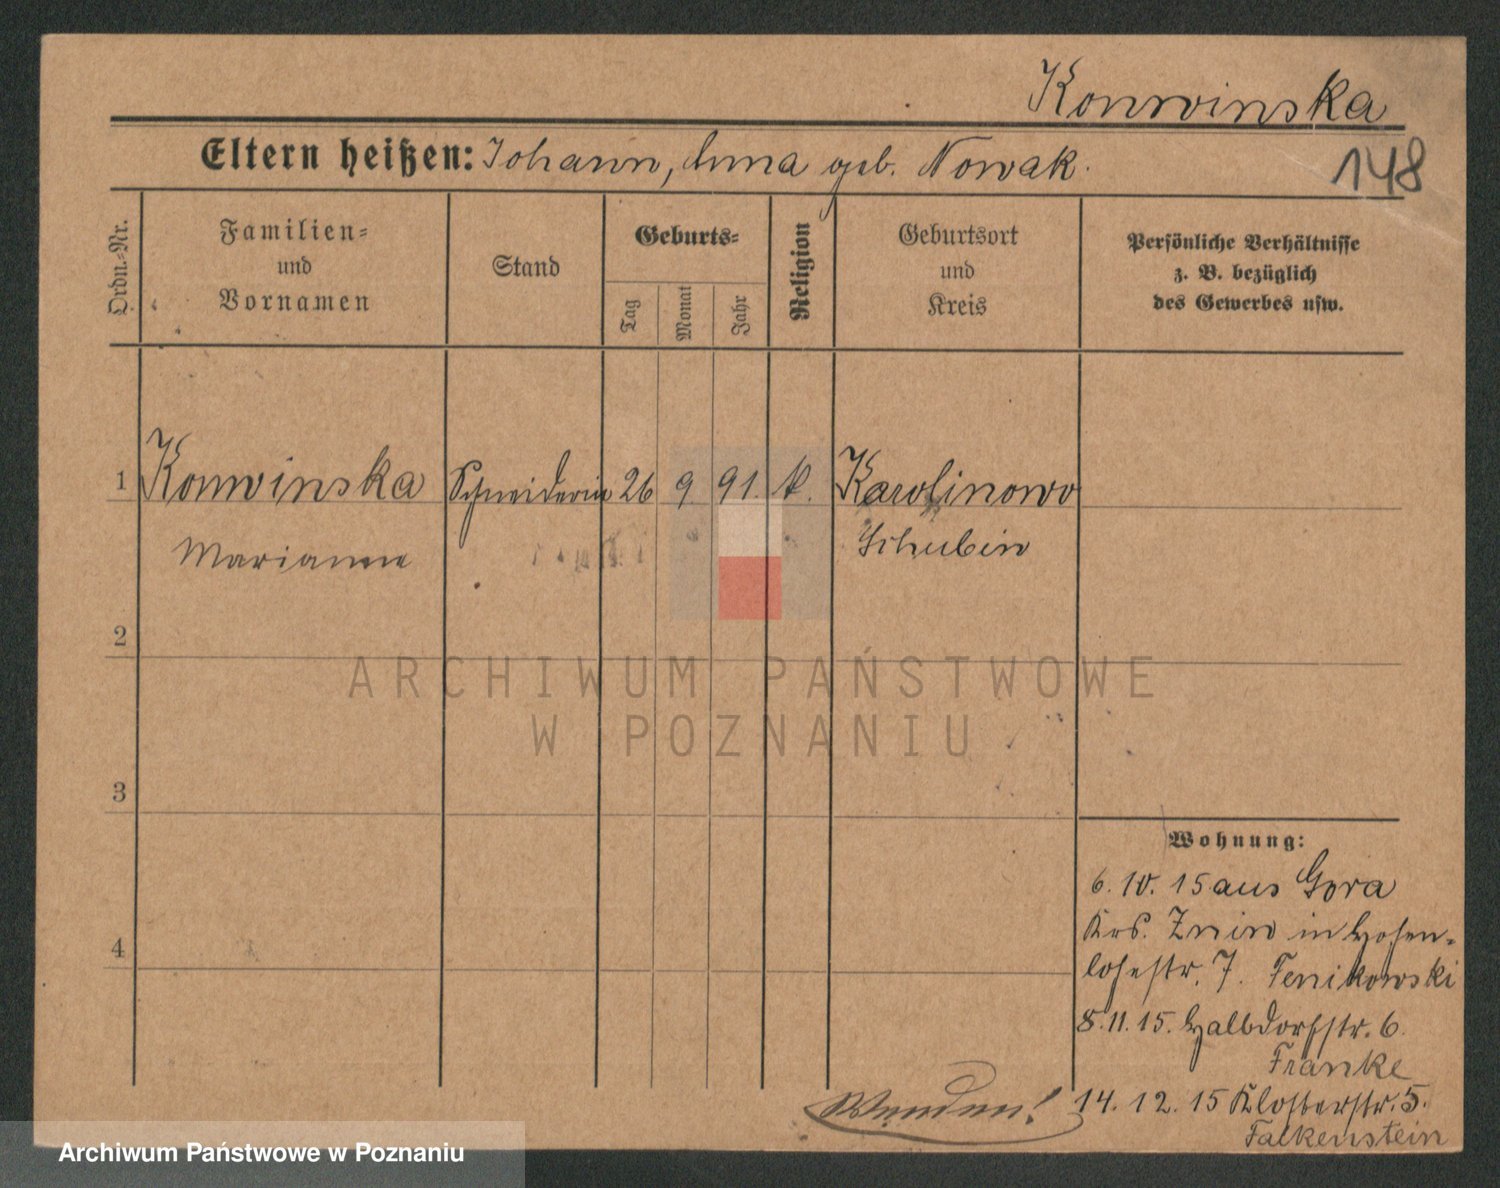 Konwinska
Eltern heißen: Johann, Anna geb. Nowak.
148
Ordn.-Nr.
Familien-
und
Vornamen
Stand
Geburts-
Tag
Monat
Jahr
Religion
Geburtsort
und
Kreis
Persönliche Verhältnisse
z. B. bezüglich
des Gewerbes usw.
1 Konwinska Schneiderin 26 9. 91. k. Karolinowo
Marianna Schubin
2
3
4
Wohnung:
6. 10. 15 aus Gora
Krs. Znin in Hohen-
lohestr. 7. Tenikowski
8. 11. 15. Halbdorfstr. 6.
Franke
14. 12. 15 Klosterstr. 5.
Falkenstein
Wenden!
ARCHIWUM PAŃSTWOWE
W POZNANIU
Archiwum Państwowe w Poznaniu